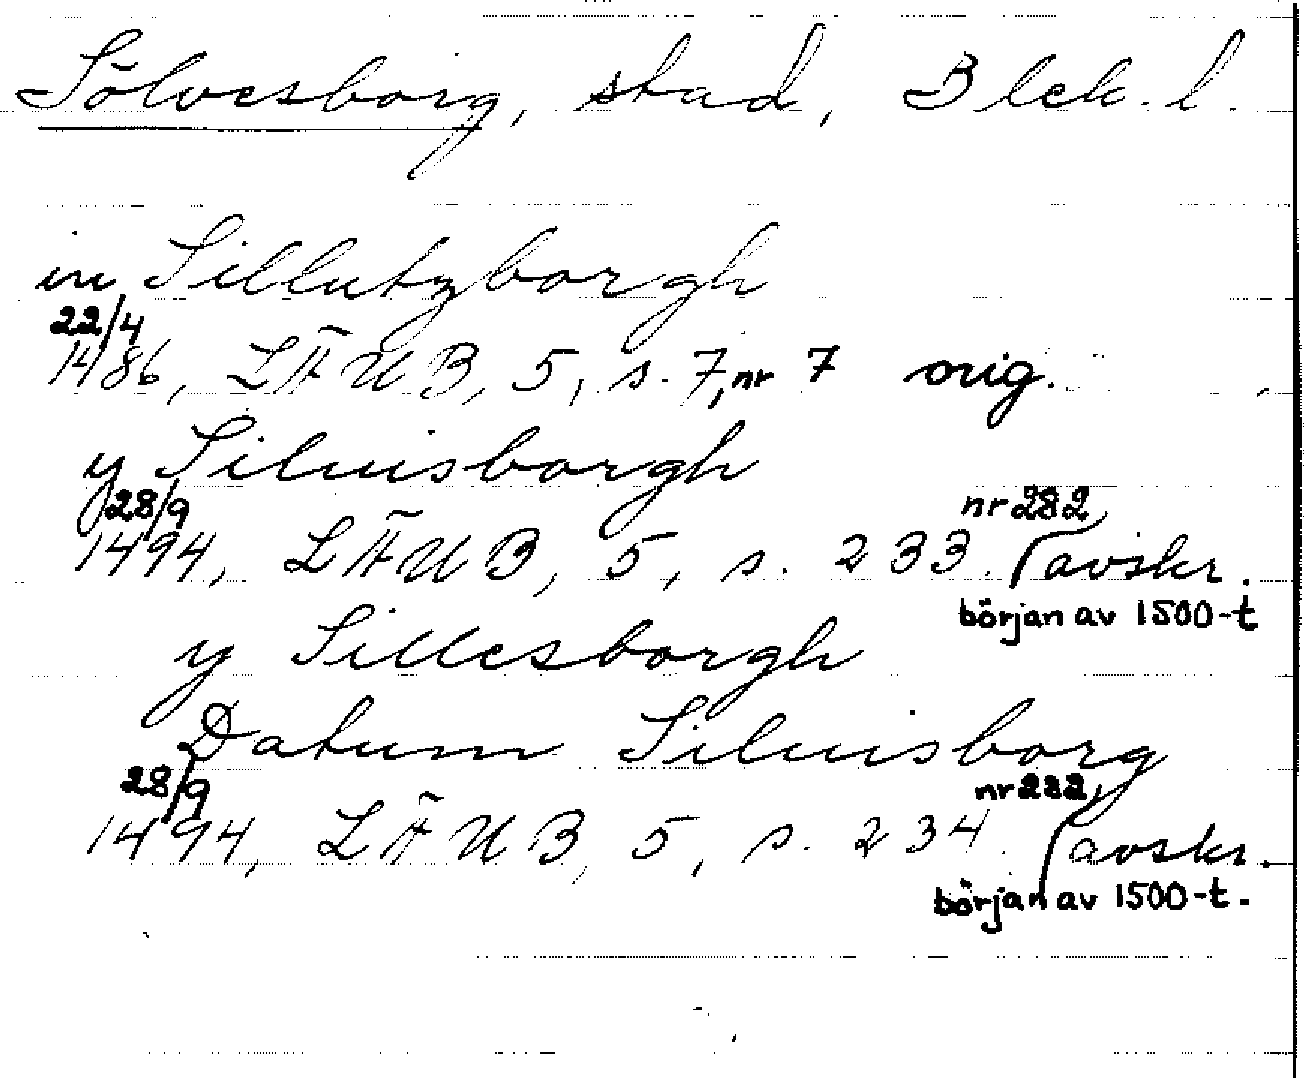 Sölvesborg, stad, Blek. l.
in Sillutzborgh
22/4
1486, LÄUB, 5, s. 7, nr 7 orig.
y Siluisborgh
28/9 nr 282,
1494, LÄUB, 5, s. 233. avskr.
början av 1500-t
y Sillesborgh
Datum Siluisborg
28/9 nr 282,
1494, LÄUB, 5, s. 234. avskr.
början av 1500-t.